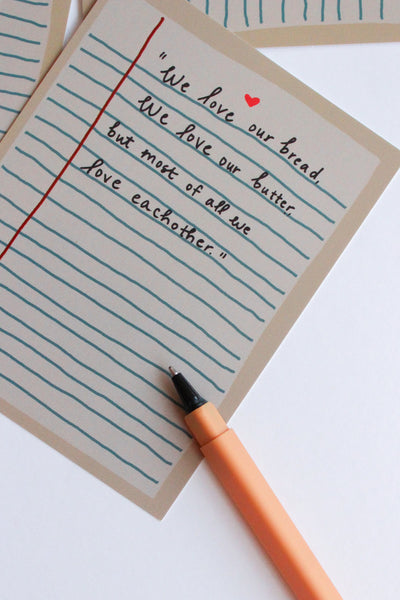 "We love our bread,
We love our butter,
but most of all we
love eachother."